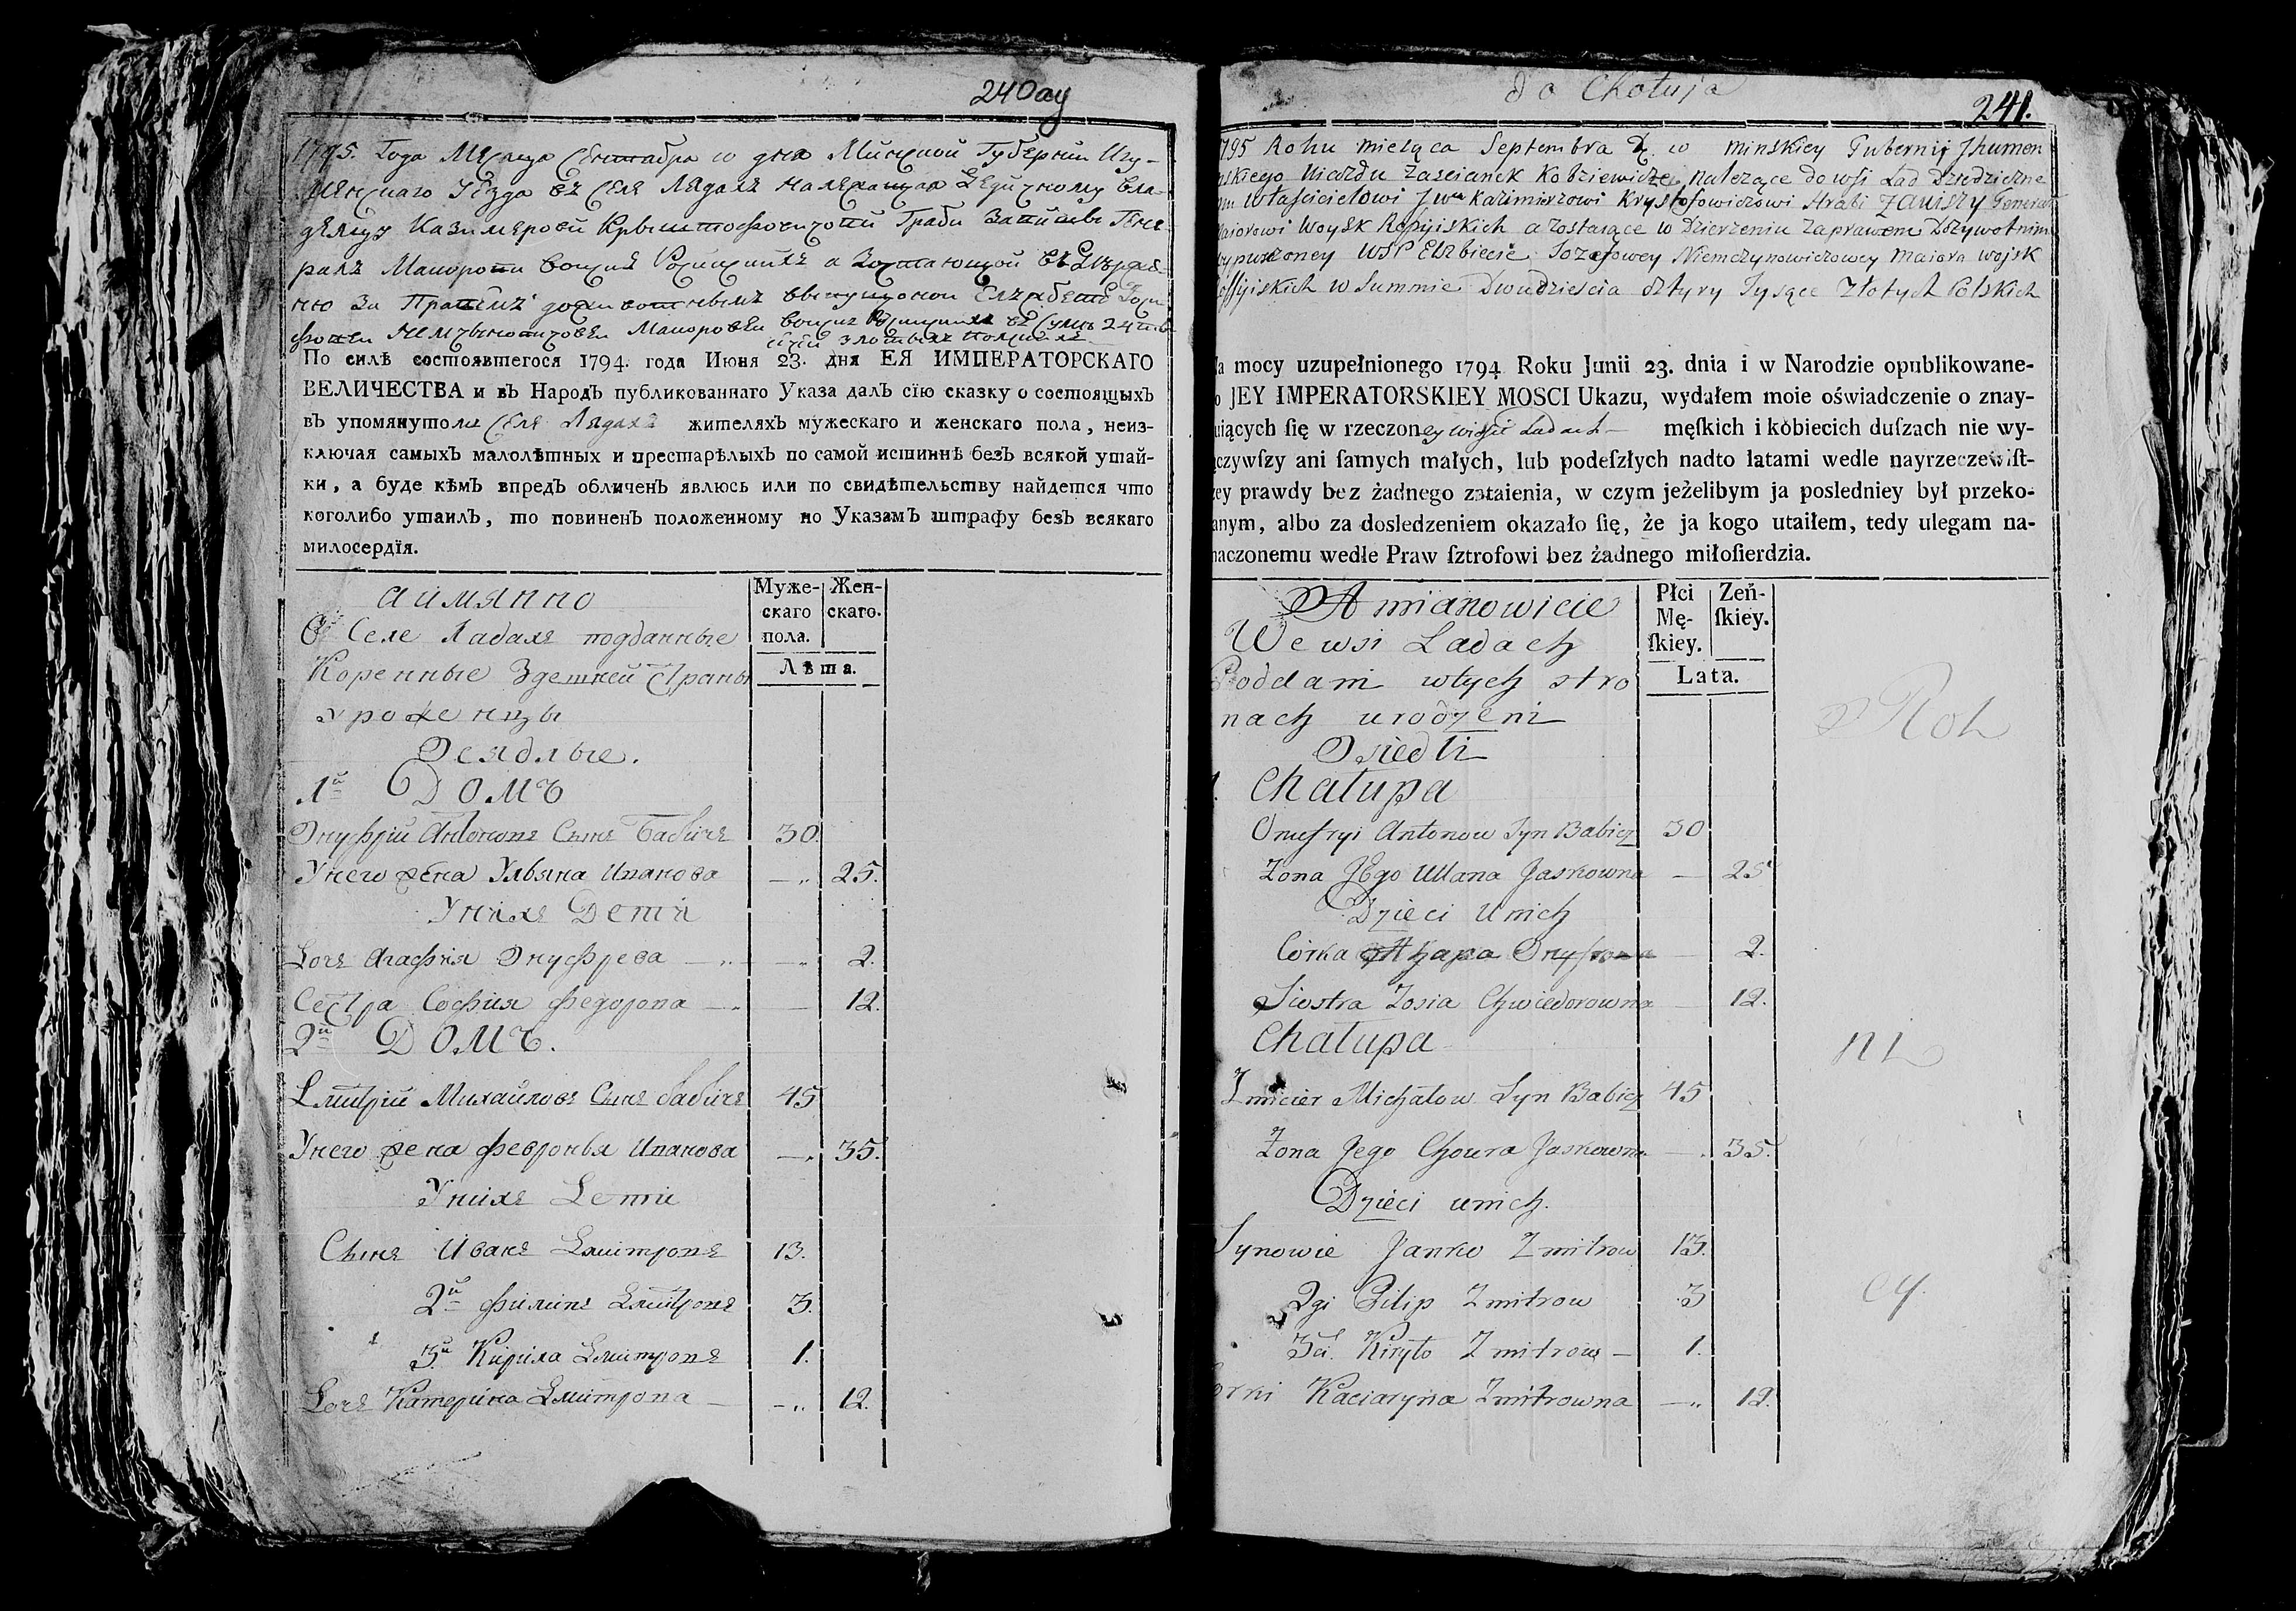 240ау
1795. Года Месяца Сентября дня Минской Губернии Игу-
менскаго уезда въ селе Лядахъ
Казимеровй Крыштофовичови Грабе Завишы Гене-
ралъ Маиорови воискъ Росиискихъ а зостающой
ню За Правемъ дожывотнымъ Елзбете
Немчыновичовеи Маиоровеи воискъ въ Суме 24
злотыхъ
По силѣ состоявшегося 1794. года Июня 23. дня ЕЯ ИМПЕРАТОРСКАГО
ВЕЛИЧЕСТВА и въ Народъ публикованнаго Указа далъ сїю сказку о состоящыхъ
въ упомянутомъ селе Лядахъ жителяхъ мужескаго и женскаго пола, неиз-
ключая самыхъ малолѣтных и престарѣлыхъ по самой истиннѣ безъ всякой утай-
ки, а буде кѣмъ впредъ обличенъ явлюсь или по свидѣтельству найдется что
коголибо утаилъ, то повиненъ положенному по Указамъ штрафу безъ всякаго
милосердїя.
аимянно
Муже-
скаго
пола.
Жен-
скаго.
Лѣта.
Селе Лядахъ подданные
Коренные Здешней Страны
уроженцы
Оседлые.
1й Домъ
Онуфрій Антоновъ Сынъ Бабичъ 30.
Унего жена Ульяна Иванова 25.
Унихъ Дети
Дочь Агафія Онуфрева 2.
Сестра София Федорова 12.
2й Домъ.
Дмитрій Михайловъ Сынъ Бабичъ 45
Унего жена Февронья Иванова 35.
Унихъ Дети
Сынъ Иванъ Дмитровъ 13.
2й Филипъ Дмитровъ 3.
3й Кирила Дмитровъ 1.
Дочь Катерина Дмитрова 12.
do Chotuja
241.
1795 Roku miesąca Septembra D. w minskiey Gubernij Jhumen
nskiego Uiazdu Zascianek Kobziewicze należące do wsi Lad Dziedziczne
mu Właścicielowi Jwu Kazimierzowi Krysztofowiczowi Hrabi Zawiszy Generał
Maiorowi Woysk Rossyiskich a zostaiące w Dzierzeniu zaprawem Dożywotnim
wypuszczoney WJP Elzbiecie Jozefowey Niemczynowiczowey Maiora wojsk
Rossyiskich w Summie Dwudzieścia cztyry Tysące Złotych Polskich
Na mocy uzupełnionego 1794 Roku Junii 23. dnia i w Narodzie opublikowane-
go JEY IMPERATORSKIEY MOSCI Ukazu, wydałem moie oświadczenie o znay-
duiących się w rzeczoney wsi Ladach męskich i kobiecich duszach nie wy-
łączywszy ani samych małych, lub podeszłych nadto latami wedle nayrzeczewist-
szey prawdy bez żadnego zataienia, w czym jeżelibym ja posledniey był przeko-
nanym, albo za dosledzeniem okazało się, że ja kogo utaiłem, tedy ulegam na-
znaczonemu wedle Praw sztrofowi bez żadnego miłosierdzia.
A mianowicie
Płci
Mę-
skiey.
Zeń-
skiey.
Lata.
We wsi Ladach
Poddani wtych stro
nach urodzeni
Osiedli
1. Chałupa
Onufryi Antonow Syn Babicz 30
Zona Jego Ullana Jaskowna 25
Dzieci Unich
Corka 2.
Siostra Zosia Chwiedorowna 12.
Chałupa
Zmicier Michałow Syn Babicz 45
Zona Jego Chowra Jaskowna 35.
Dzieci unich.
Synowie Janko Zmitrow 13.
2gi Pilip Zmitrow 3
3ci Kiryło Zmitrow 1.
Corki Kaciaryna Zmitrowna 12.